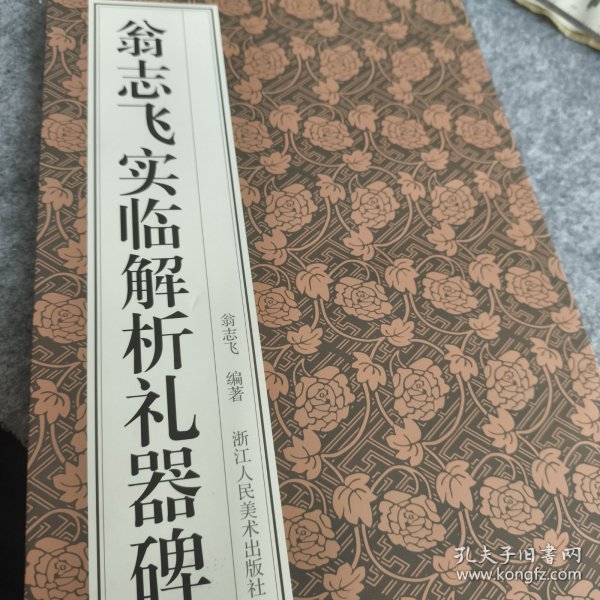 翁志飞实临解析礼器碑
翁志飞 编著 浙江人民美术出版社
孔夫子旧书网
www.kongfz.com